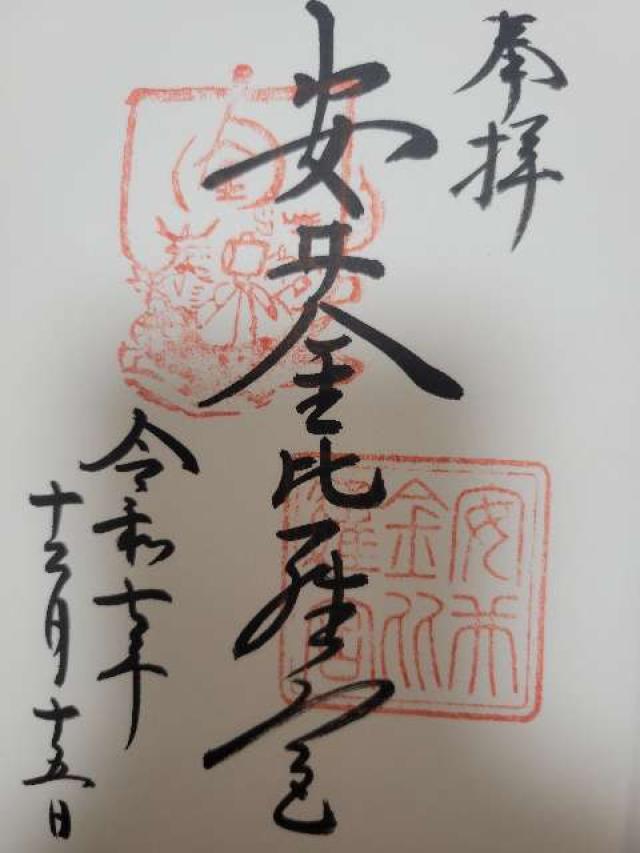 奉拝
安井金比羅宮
令和七年
十二月十五日
金
安井
金比
羅宮